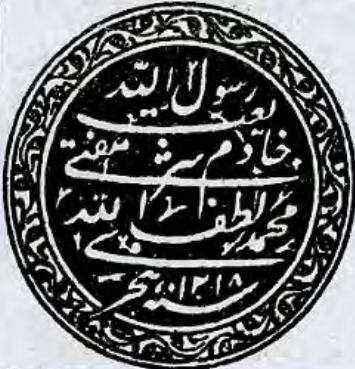 رسول اللہ
خادم شرع مفتی
محمد لطف اللہ
سنہ ہجری ۱۲۱۸